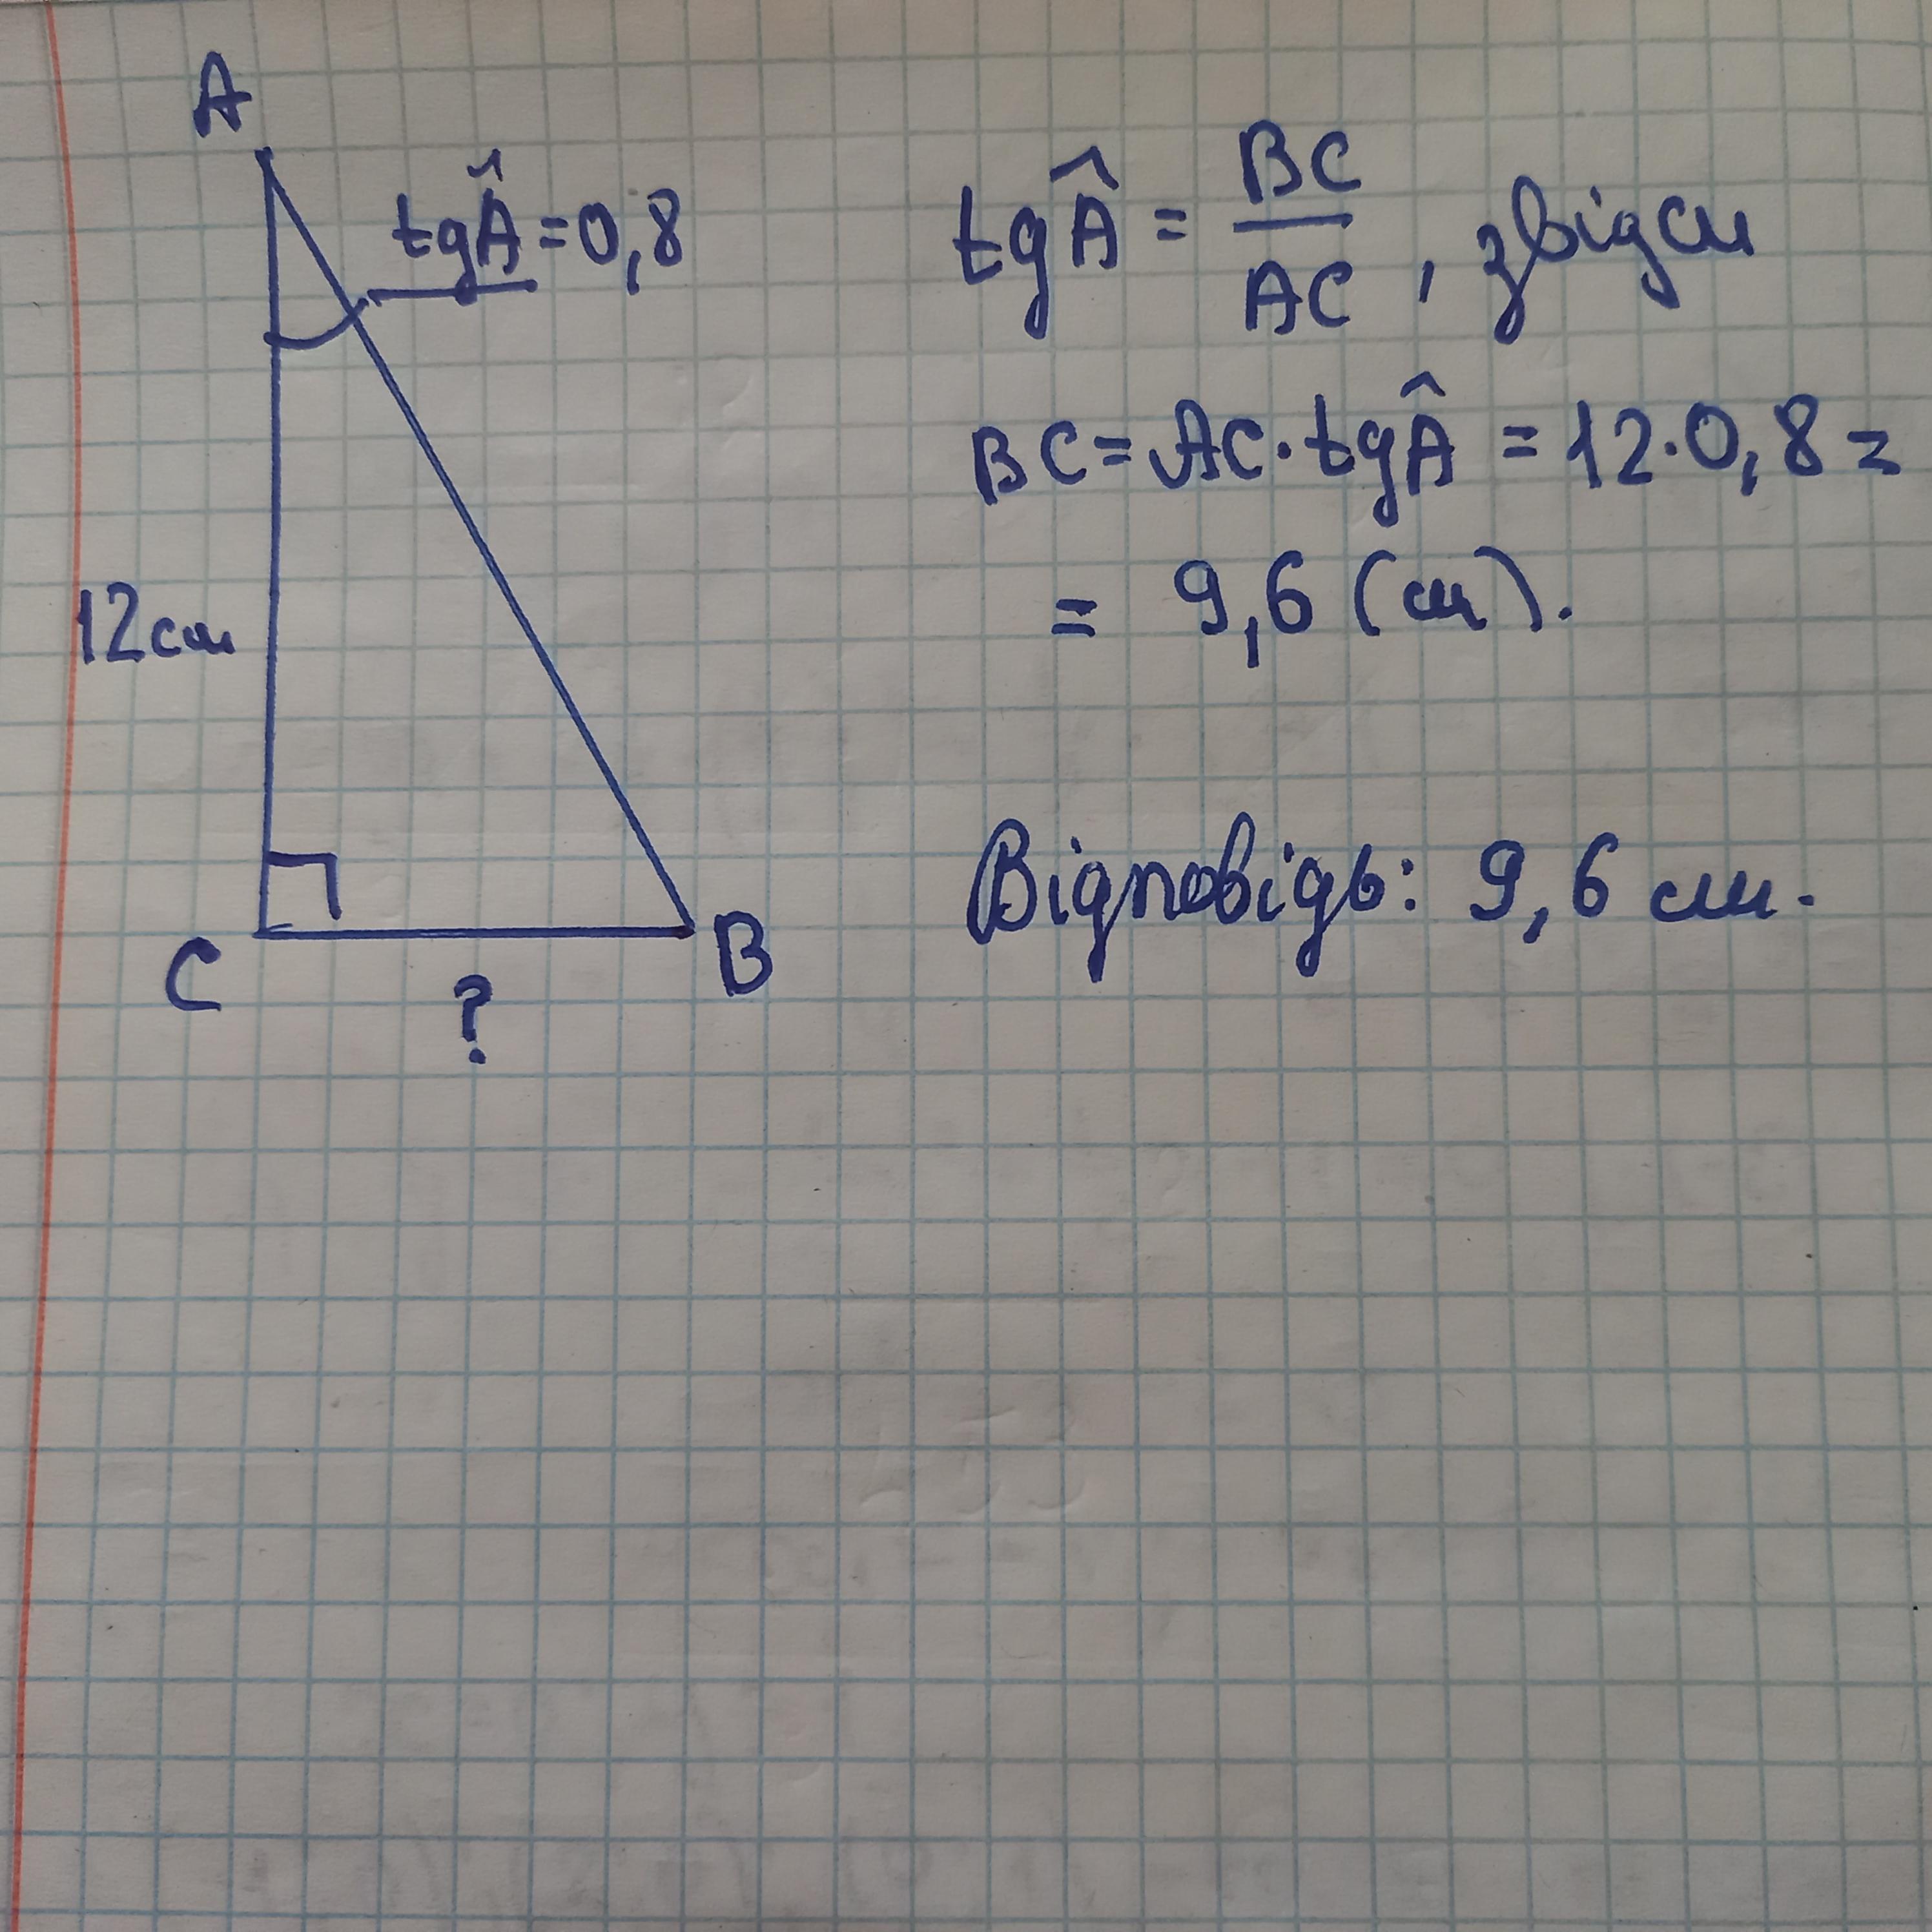 A
tgÂ = 0,8
12см
C
B
?
tgÂ = BC/AC , звідси
BC = AC · tgÂ = 12 · 0,8 =
= 9,6 (см).
Відповідь: 9,6 см.